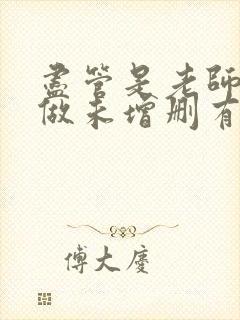 盡管是老師
做未增刪有
傅大慶